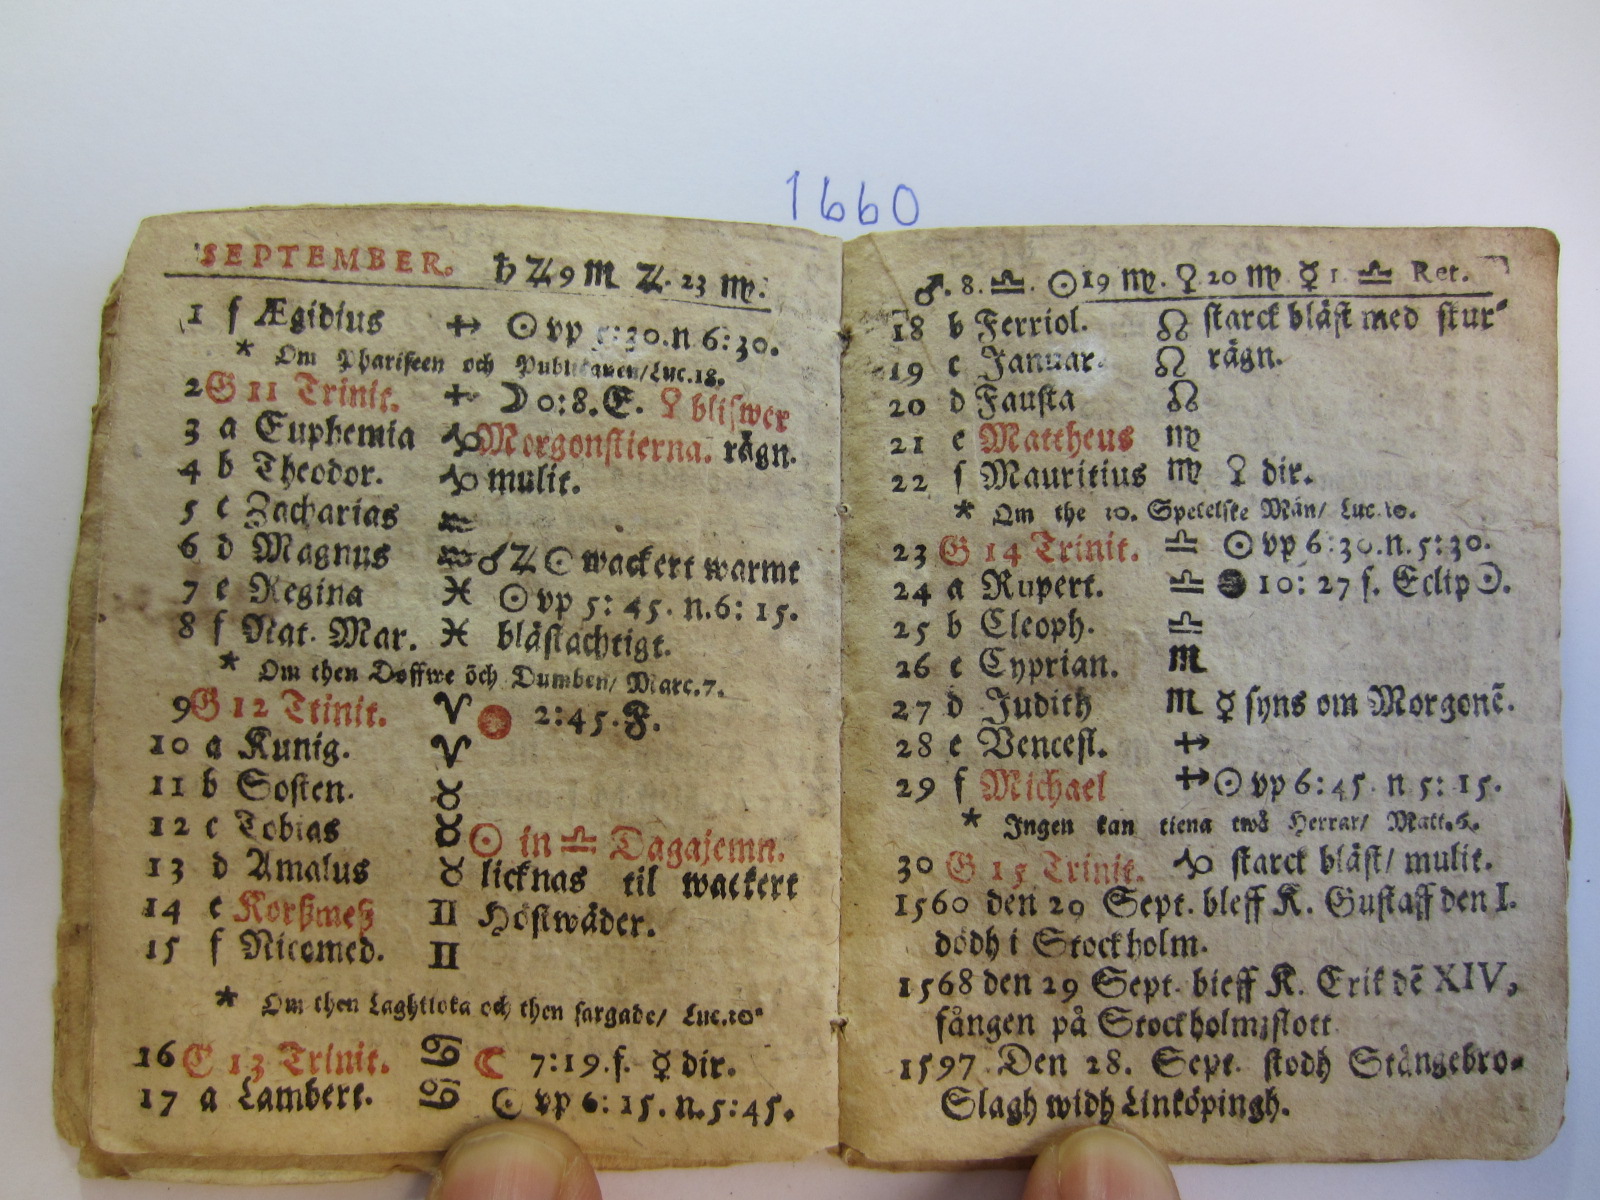 1660
SEPTEMBER. ♄ ♃ 9 ♏ ♃. 23 ♍.
1 f Ægidius ♐ ☉ vp 5:30.n 6:30.
* Om Phariseen och Publikanen/Luc.18.
2 G 11 Trinit. ♐ ☽ 0:8.E. ♀ blifwer
3 a Euphemia ♑ Morgonstierna. rägn.
4 b Theodor. ♑ mulit.
5 c Zacharias ♒
6 d Magnus ♒ ☌ ♃ ☉ wackert warmt
7 e Regina ♓ ☉ vp 5:45. n.6:15.
8 f Nat. Mar. ♓ blåstachtigt.
* Om then Doffwe och Dumben/ Marc.7.
9 G 12 Trinit. ♈ 2:45.F.
10 a Kunig. ♈
11 b Sosten. ♉
12 c Tobias ♉ ☉ in ♎ Dagajemn.
13 d Amalus ♉ licknas til wackert
14 e Korßmeß ♊ Höstwäder.
15 f Nicomed. ♊
* Om then Laghkloka och then sargade/ Luc.10.
16 G 13 Trinit. ♋ ☾ 7:19.f. ☿ dir.
17 a Lambert. ♋ ☉ vp 6:15.n.5:45.
♂. 8. ♎. ☉19 ♍. ♀ 20 ♍. ☿ 1. ♎ Ret.
18 b Ferriol. ♌ starck blåst med skur⸗
19 c Januar. ♌ rägn.
20 d Fausta ♌
21 e Mattheus ♍
22 f Mauritius ♍ ♀ dir.
* Om the 10. Spetelske Män/ Luc.10.
23 G 14 Trinit. ♎ ☉ vp 6:30.n.5:30.
24 a Rupert. ♎ ● 10:27 f. Eclip☉.
25 b Cleoph. ♎
26 c Cyprian. ♏
27 d Judith ♏ ☿ syns om Morgonẽ.
28 e Vencesl. ♐
29 f Michael ♐ ☉ vp 6:45. n 5:15.
* Ingen kan tiena twå Herrar/ Matt.6.
30 G 15 Trinit. ♑ starck blåst/ mulit.
1560 den 29 Sept. bleff K. Gustaff den I.
dödh i Stockholm.
1568 den 29 Sept. bleff K. Erik dẽ XIV,
fången på Stockholmzslott
1597 Den 28. Sept. stodh Stångebro⸗
Slagh widh Linköpingh.